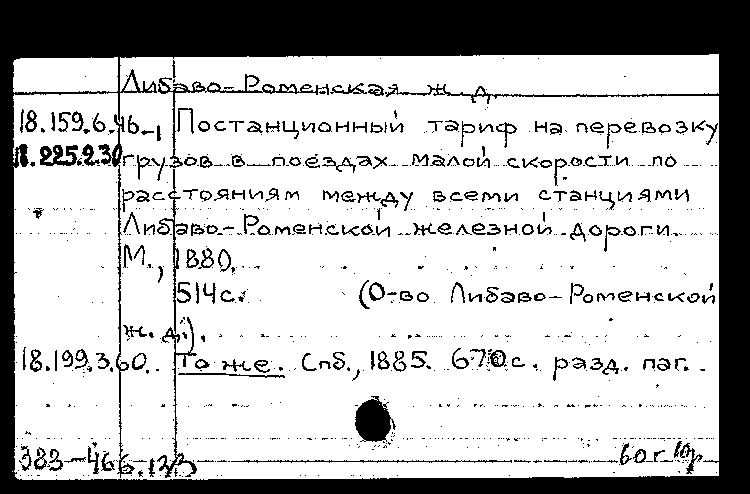 Либаво-Роменская ж. д.
18.159.6.46-1 Постанционный тариф на перевозку
18.225.2.30 грузов в поездах малой скорости по
расстояниям между всеми станциями
Либаво-Роменской железной дороги.
М., 1880.
514с. (О-во Либаво-Роменской
ж. д.).
18.199.3.60. То же. Спб., 1885. 670с. разд. паг.
60 г.